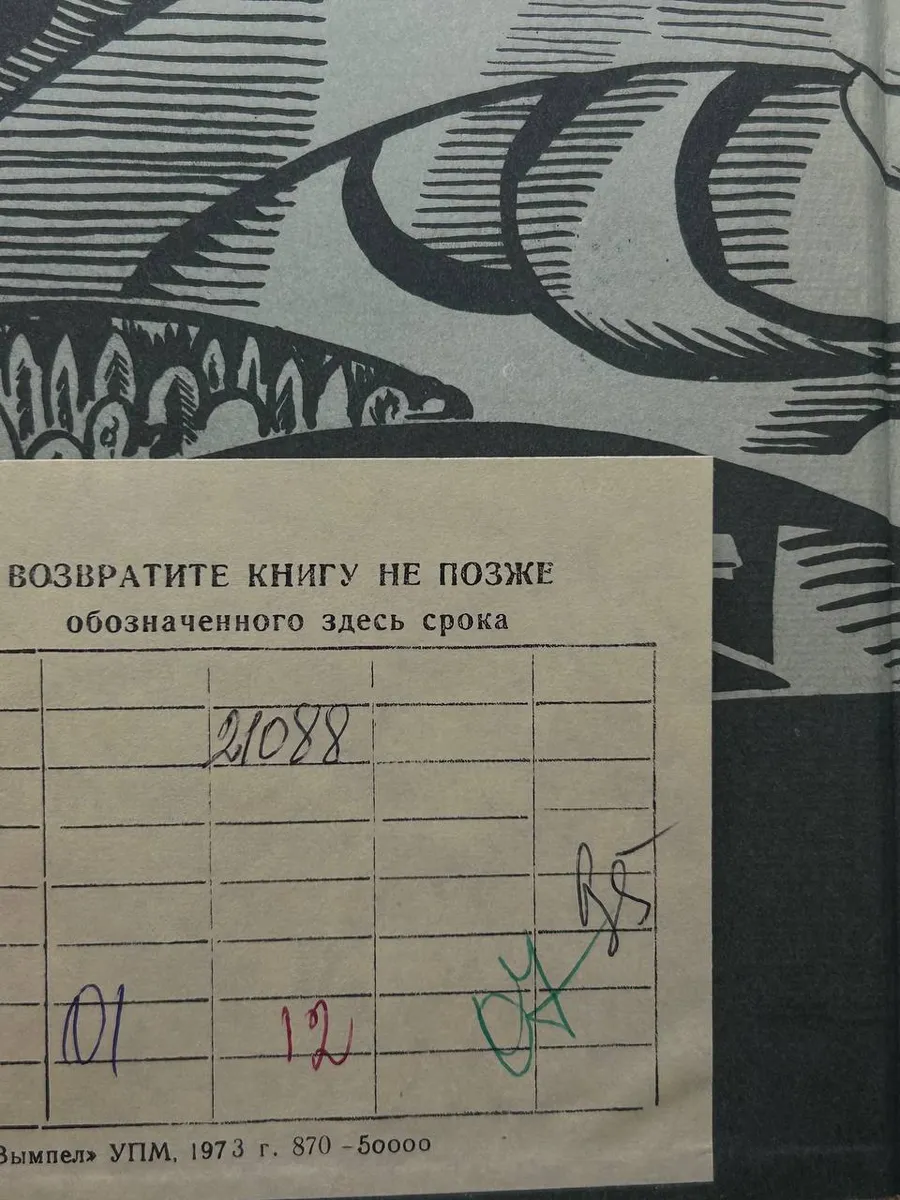 ВОЗВРАТИТЕ КНИГУ НЕ ПОЗЖЕ
обозначенного здесь срока
21088
01 12
Вымпел» УПМ, 1973 г. 870 -50000